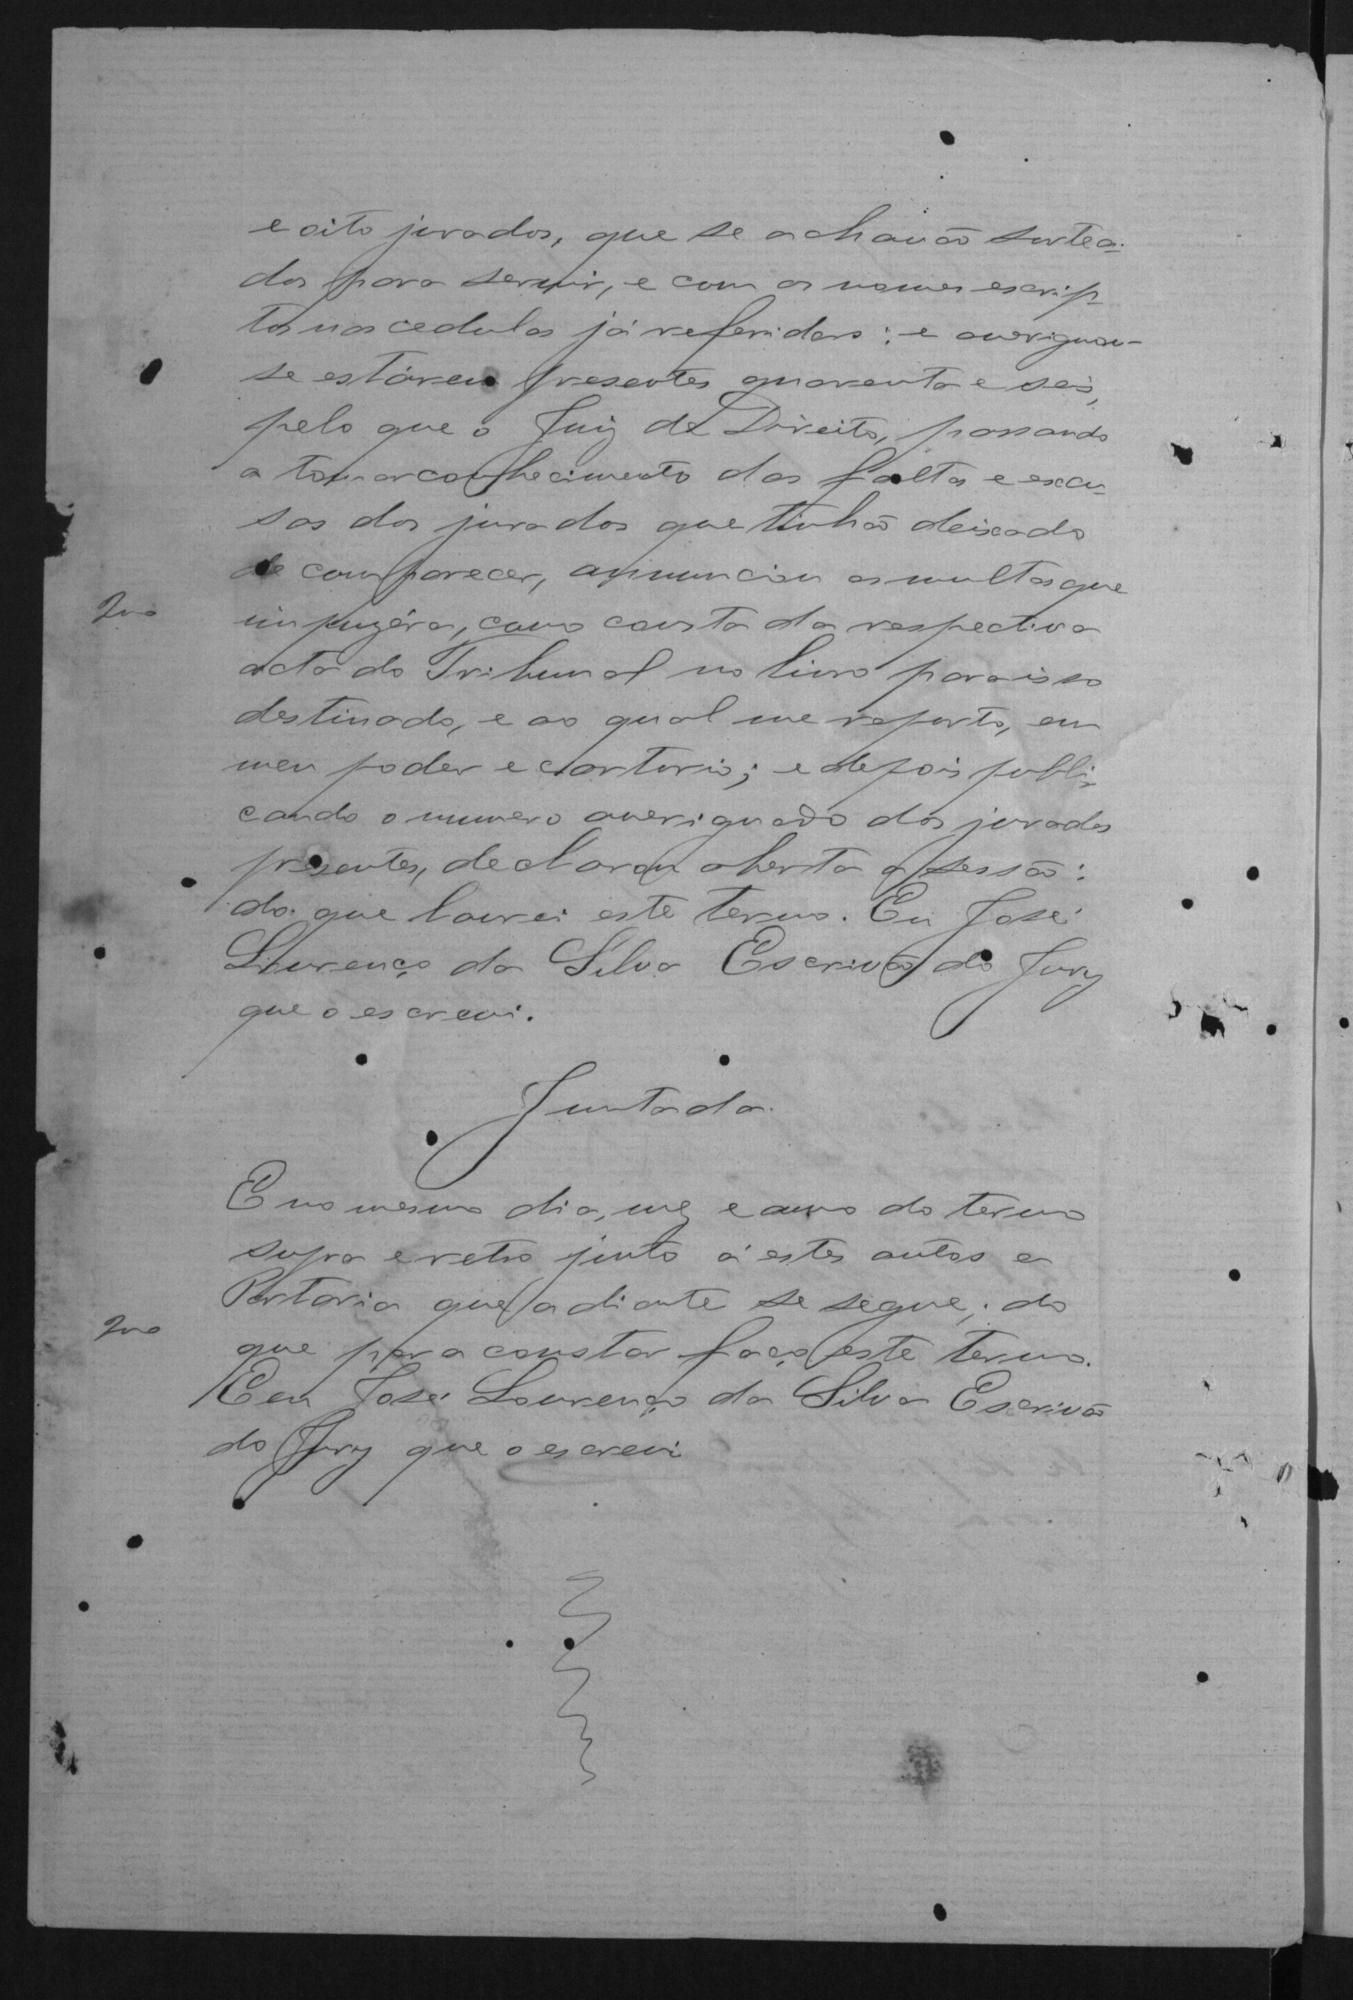 e oito jurados, que se achavão sortea-
dos para servir, e com os nomes escrip-
tos nas cedulas já referidas: e averiguou-
se estárem presentes quarenta e seis,
pelo que o Juiz de Direito, passando
a tomar conhecimento das faltas e escu-
sas dos jurados que tinhão deixado
de comparecer, annunciou as multas que
impuzéra, como consta da respectiva
acta do Tribunal no livro para isso
destinado, e ao qual me reporto, em
meu poder e cartorio; e depois publi-
cando o numero averiguado dos jurados
presentes, declarou aberta a sessão:
do que lavrei este termo. Eu José
Lourenço da Silva Escrivão do Jury
que o escrevi.
Juntada.
E no mesmo dia, mez e anno do termo
supra e retro junto á estes autos a
Portaria que adiante se segue; do
que para constar faço este termo.
E eu José Lourenço da Silva Escrivão
do Jury que o escrevi